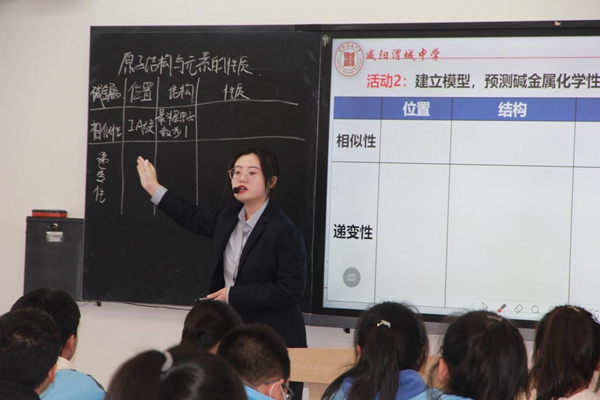 原子结构与元素的性质
碱金属 位置 结构 性质
相似性 IA族 最外层电子数为1
递变性
咸阳渭城中学
活动2：建立模型，预测碱金属化学性
位置 结构
相似性
递变性